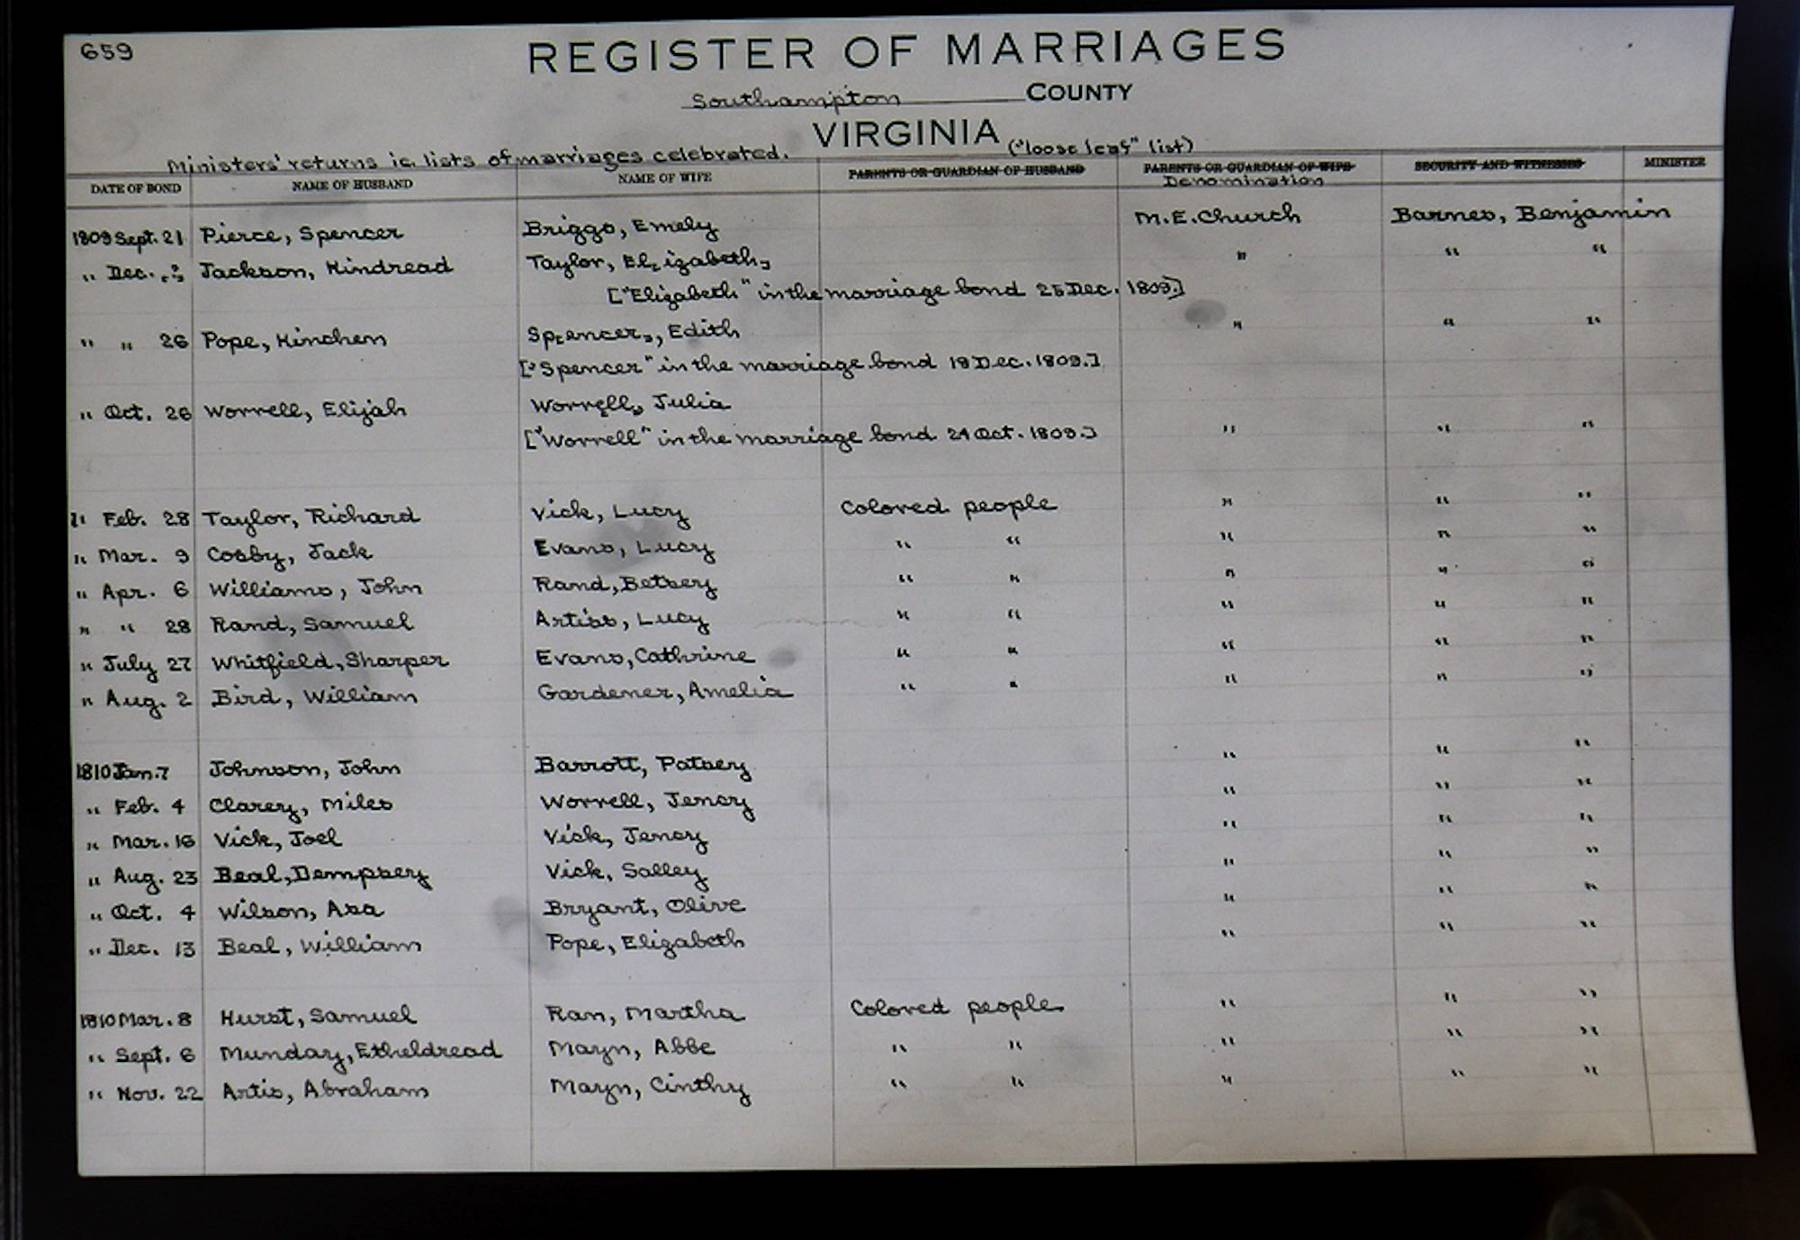 659
REGISTER OF MARRIAGES
Southampton COUNTY
VIRGINIA ("loose leaf" list)
Ministers' returns ie. lists of marriages celebrated.
DATE OF BOND NAME OF HUSBAND NAME OF WIFE PARENTS OR GUARDIAN OF HUSBAND PARENTS OR GUARDIAN OF WIFE SECURITY AND WITNESSES MINISTER
Denomination
1809 Sept. 21 Pierce, Spencer Briggs, Emely M.E. Church Barnes, Benjamin
" Dec. Jackson, Kindread Taylor, El[izabeth] " " "
["Elizabeth" in the marriage bond 25 Dec. 1809.]
" " 26 Pope, Kinchen Sp[encer], Edith " " "
["Spencer" in the marriage bond 18 Dec. 1809.]
" Oct. 26 Worrell, Elijah Worr[ell], Julia
["Worrell" in the marriage bond 24 Oct. 1809.] " " "
" Feb. 28 Taylor, Richard Vick, Lucy Colored people " " "
" Mar. 9 Cosby, Jack Evans, Lucy " " " " "
" Apr. 6 Williams, John Rand, Betsey " " " " "
" " 28 Rand, Samuel Artiss, Lucy " " " " "
" July 27 Whitfield, Sharper Evans, Cathrine " " " " "
" Aug. 2 Bird, William Gardener, Amelia " " " " "
1810 Jan. 7 Johnson, John Barrott, Patsey " " "
" Feb. 4 Clarey, Miles Worrell, Jency " " "
" Mar. 16 Vick, Joel Vick, Jency " " "
" Aug. 23 Beal, Dempsey Vick, Salley " " "
" Oct. 4 Wilson, Asa Bryant, Olive " " "
" Dec. 13 Beal, William Pope, Elizabeth " " "
1810 Mar. 8 Hurst, Samuel Ran, Martha Colored people " " "
" Sept. 6 Munday, Etheldread Mayn, Abbe " " " " "
" Nov. 22 Artis, Abraham Mayn, Cinthy " " " " "